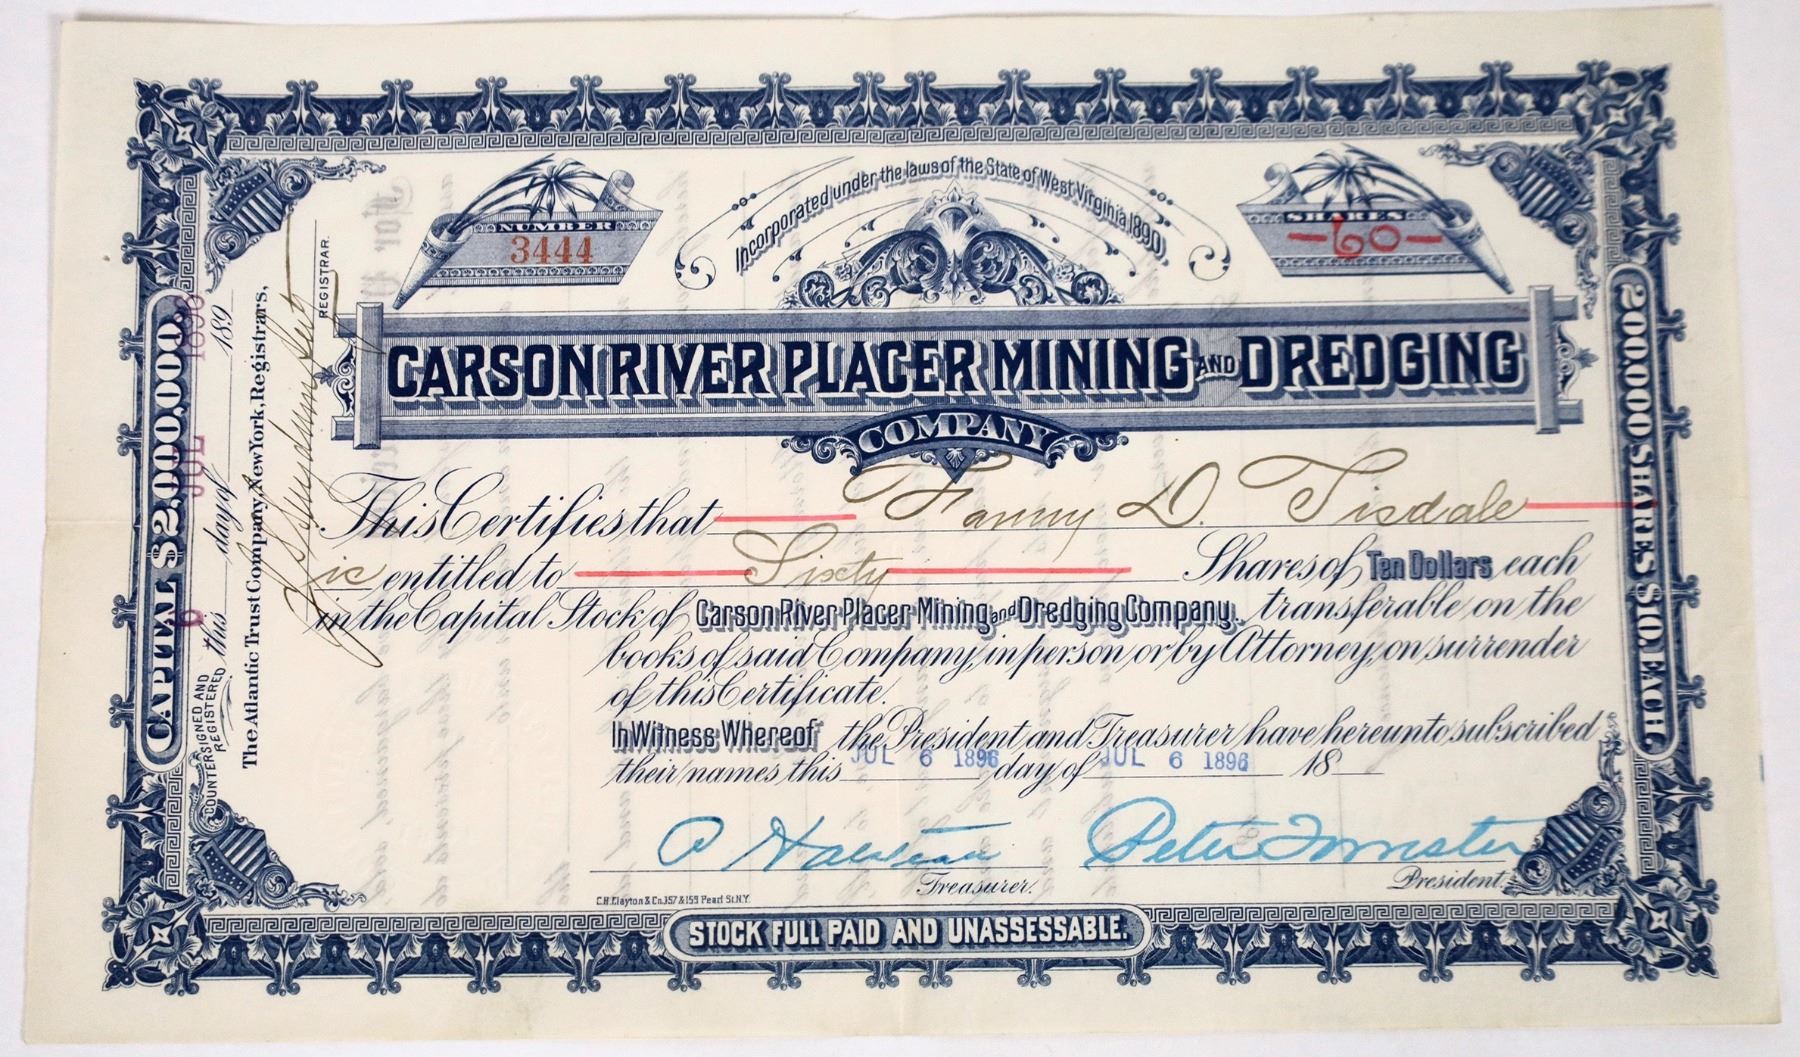 Incorporated under the laws of the State of West Virginia 1890.
NUMBER
3444
SHARES
—60—
CARSON RIVER PLACER MINING AND DREDGING
COMPANY
This Certifies that Fanny D. Tisdale
is entitled to Sixty Shares of Ten Dollars each
in the Capital Stock of Carson River Placer Mining and Dredging Company, transferable on the
books of said Company, in person or by Attorney, on surrender
of this Certificate.
In Witness Whereof the President and Treasurer have hereunto subscribed
their names this JUL 6 1896 day of JUL 6 1896 18
Peter Forrester
Treasurer.
President.
C.H. Clayton & Co. 157 & 159 Pearl St. N.Y.
STOCK FULL PAID AND UNASSESSABLE.
CAPITAL $2,000,000.
COUNTERSIGNED AND
REGISTERED this 6 day of JUL 1896 189
The Atlantic Trust Company, New York, Registrars,
REGISTRAR.
200,000 SHARES $10. EACH.